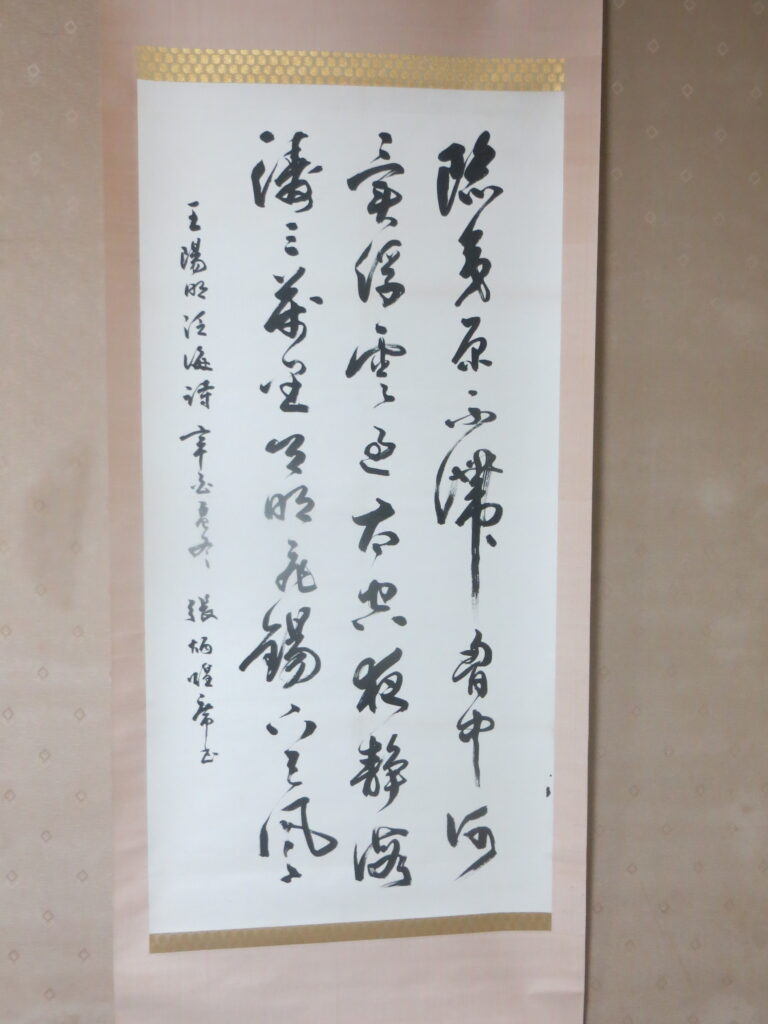 險夷原不滯胸中何
異浮雲過太空夜靜海
濤三萬里月明飛錫下天風
王陽明泛海詩 辛酉孟冬 張炳煌席書